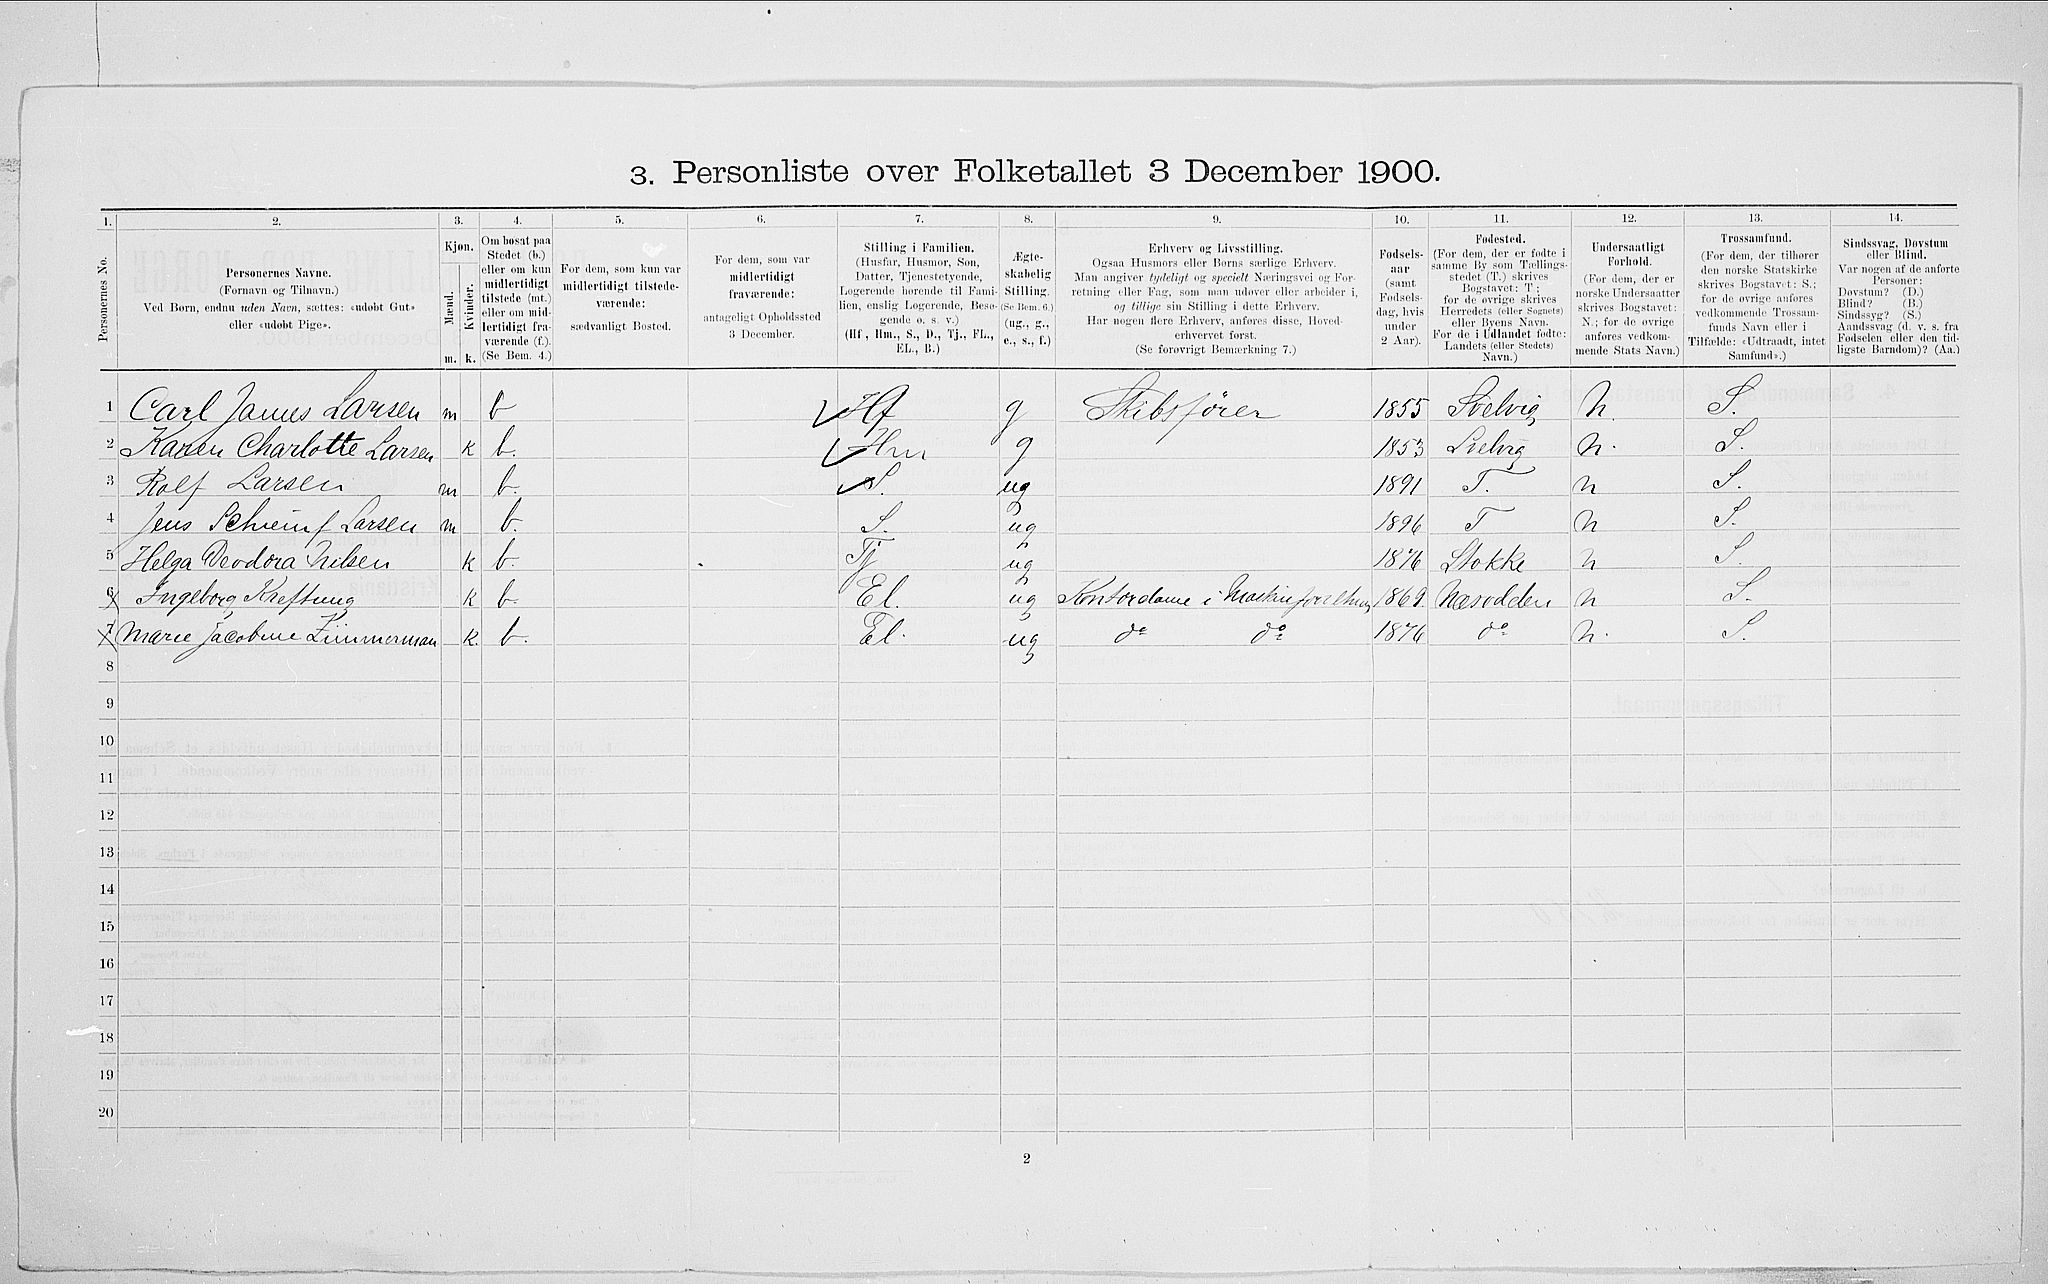 3. Personliste over Folketallet 3 December 1900.
1. 2. 3. 4. 5. 6. 7. 8. 9. 10. 11. 12. 13. 14.
Personernes No.
Personernes Navne.
(Fornavn og Tilnavn.)
Ved Børn, endnu uden Navn, sættes: «udøbt Gut»
eller «udøbt Pige».
Kjøn.
Mænd.
Kvinder.
m. k.
Om bosat paa
Stedet (b.)
eller om kun
midlertidigt
tilstede (mt.)
eller om mid-
lertidigt fra-
værende (f.).
(Se Bem. 4.)
For dem, som kun var
midlertidigt tilstede-
værende:
sædvanligt Bosted.
For dem, som var
midlertidigt
fraværende:
antageligt Opholdssted
3 December.
Stilling i Familien.
(Husfar, Husmor, Søn,
Datter, Tjenestetyende,
Logerende hørende til Fami-
lien, enslig Logerende, Besø-
gende o. s. v.)
(Hf., Hm., S., D., Tj., FL.,
EL., B.)
Ægte-
skabelig
Stilling.
(Se Bem. 6.)
(ug., g.,
e., s., f.)
Erhverv og Livsstilling.
Ogsaa Husmors eller Børns særlige Erhverv.
Man angiver tydeligt og specielt Næringsvei og For-
retning eller Fag, som man udøver eller arbeider i,
og tillige sin Stilling i dette Erhverv.
Har nogen flere Erhverv, anføres disse, Hoved-
erhvervet først.
(Se forøvrigt Bemærkning 7.)
Fødsels-
aar
(samt
Fødsels-
dag, hvis
under
2 Aar).
Fødested.
(For dem, der er fødte i
samme By som Tællings-
stedet (T.) skrives
Bogstavet: T.;
for de øvrige skrives
Herredets (eller Sognets)
eller Byens Navn.
For de i Udlandet fødte:
Landets (eller Stedets)
Navn.)
Undersaatligt
Forhold.
(For dem, der er
norske Undersaatter
skrives Bogstavet:
N.; for de øvrige
anføres vedkom-
mende Stats Navn.)
Trossamfund.
(For dem, der tilhører
den norske Statskirke
skrives Bogstavet: S.;
for de øvrige anføres
vedkommende Trossam-
funds Navn eller i
Tilfælde: «Udtraadt, intet
Samfund».)
Sindssvag, Døvstum
eller Blind.
Var nogen af de anførte
Personer:
Døvstum? (D.)
Blind? (B.)
Sindssyg? (S.)
Aandssvag (d. v. s. fra
Fødselen eller den tid-
ligste Barndom)? (Aa.)
1 Carl Janus Larsen m b Hf g Skibsfører 1855 Svelvig N. S.
2 Karen Charlotte Larsen k b. Hm g 1853 Svelvig n. S.
3 Rolf Larsen m b. S. ug 1891 T. n S.
4 Jens Larsen m b. S. ug 1896 T n S.
5 Helga Deodora Nilsen k b. Tj ug 1876 Stokke n S.
6 Ingeborg Kreftung k b. El. ug Kontordame i 1869. Næsodden n S.
7 Marie Jacobine Zimmerman k. b. El. ug do do 1876 do n. S.
8
9
10
11
12
13
14
15
16
17
18
19
20
2